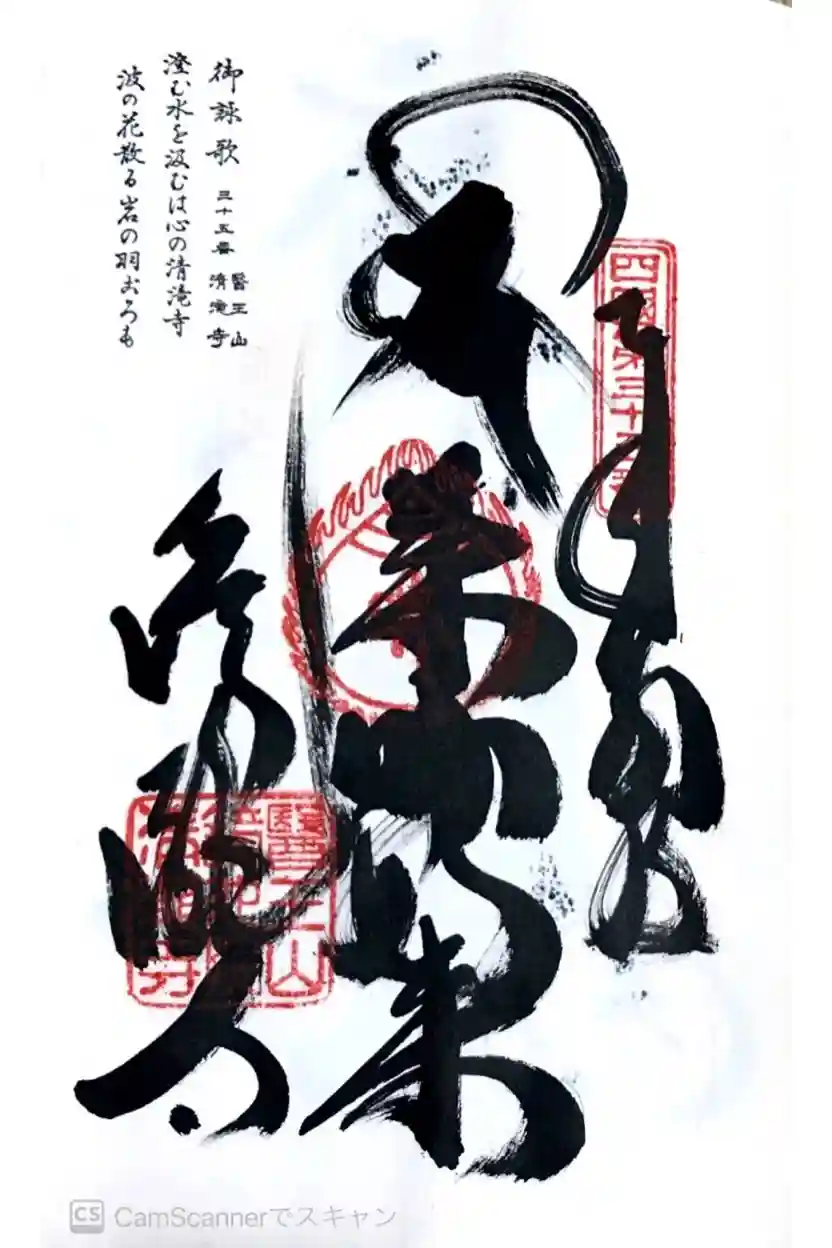 四国第三十五番
奉納
薬師如来
清瀧寺
醫王山
御詠歌 三十五番 醫王山 清滝寺
澄む水を汲むは心の清滝寺
波の花散る岩の羽おろも
CS CamScannerでスキャン